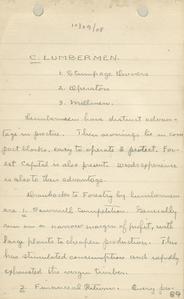 10/29/08
C. LUMBERMEN.
1. Stumpage Owners
2. Operators
3. Millmen.
Lumbermen have distinct advan-
tage in practice. Their ownings lie in com-
pact blocks, easy to operate & protect. For-
est Capital is also present. Woods experience
is also to their advantage.
Drawbacks to Forestry by lumbermen
are 1. Sawmill Competition. Generally
run on a narrow margin of profit, with
large plants to cheapen production. This
has stimulated consumption and rapidly
exhausted the virgin timber.
2. Financial Return. Every pro-
89